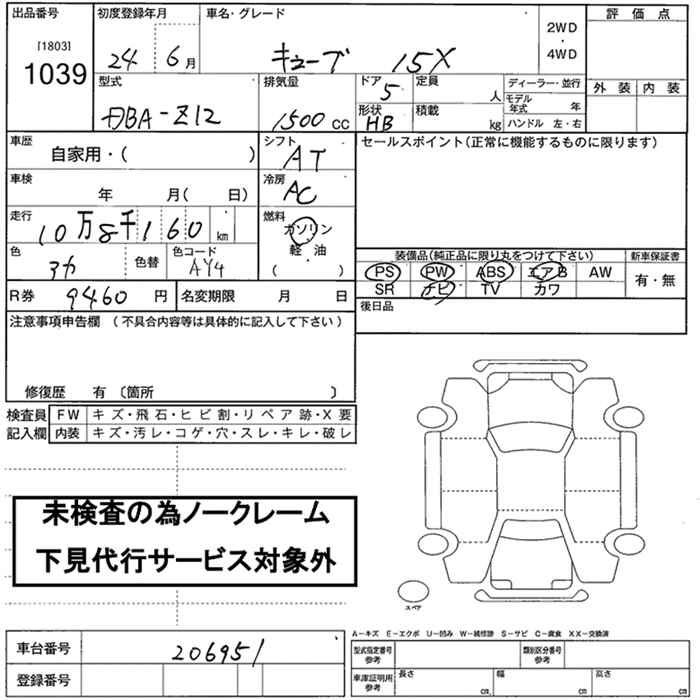 出品番号 初度登録年月 車名・グレード 評価点
[1803] 2WD
1039 24 6月 キューブ 15X ・
4WD
型式 排気量 ドア 5 定員 人 ディーラー・並行 外装 内装
DBA-Z12 1500 CC 形状 HB 積載 kg モデル年式 年
ハンドル 左・右
車歴 シフト セールスポイント(正常に機能するものに限ります)
自家用・( ) AT
車検 年 月( 日) 冷房 AC
走行 10万8千160 km 燃料 ガソリン
軽・油
( )
色 色替 色コード AY4
装備品(純正品に限り丸をつけて下さい) 新車保証書
PS PW ABS エアB AW 有・無
SR ナビ TV カワ
R券 9460 円 名変期限 月 日 後日品
注意事項申告欄 (不具合内容等は具体的に記入して下さい)
修復歴 有 〔箇所 〕
検査員 FW キズ・飛石・ヒビ割・リペア跡・X要
記入欄 内装 キズ・汚レ・コゲ・穴・スレ・キレ・破レ
未検査の為ノークレーム
下見代行サービス対象外
スペア
A-キズ E-エクボ U-凹み W-補修跡 S-サビ C-腐食 XX-交換済
車台番号 206951 型式指定番号 参考 類別区分番号 参考
登録番号 車庫証明用 参考 長さ cm, 幅 cm, 高さ cm